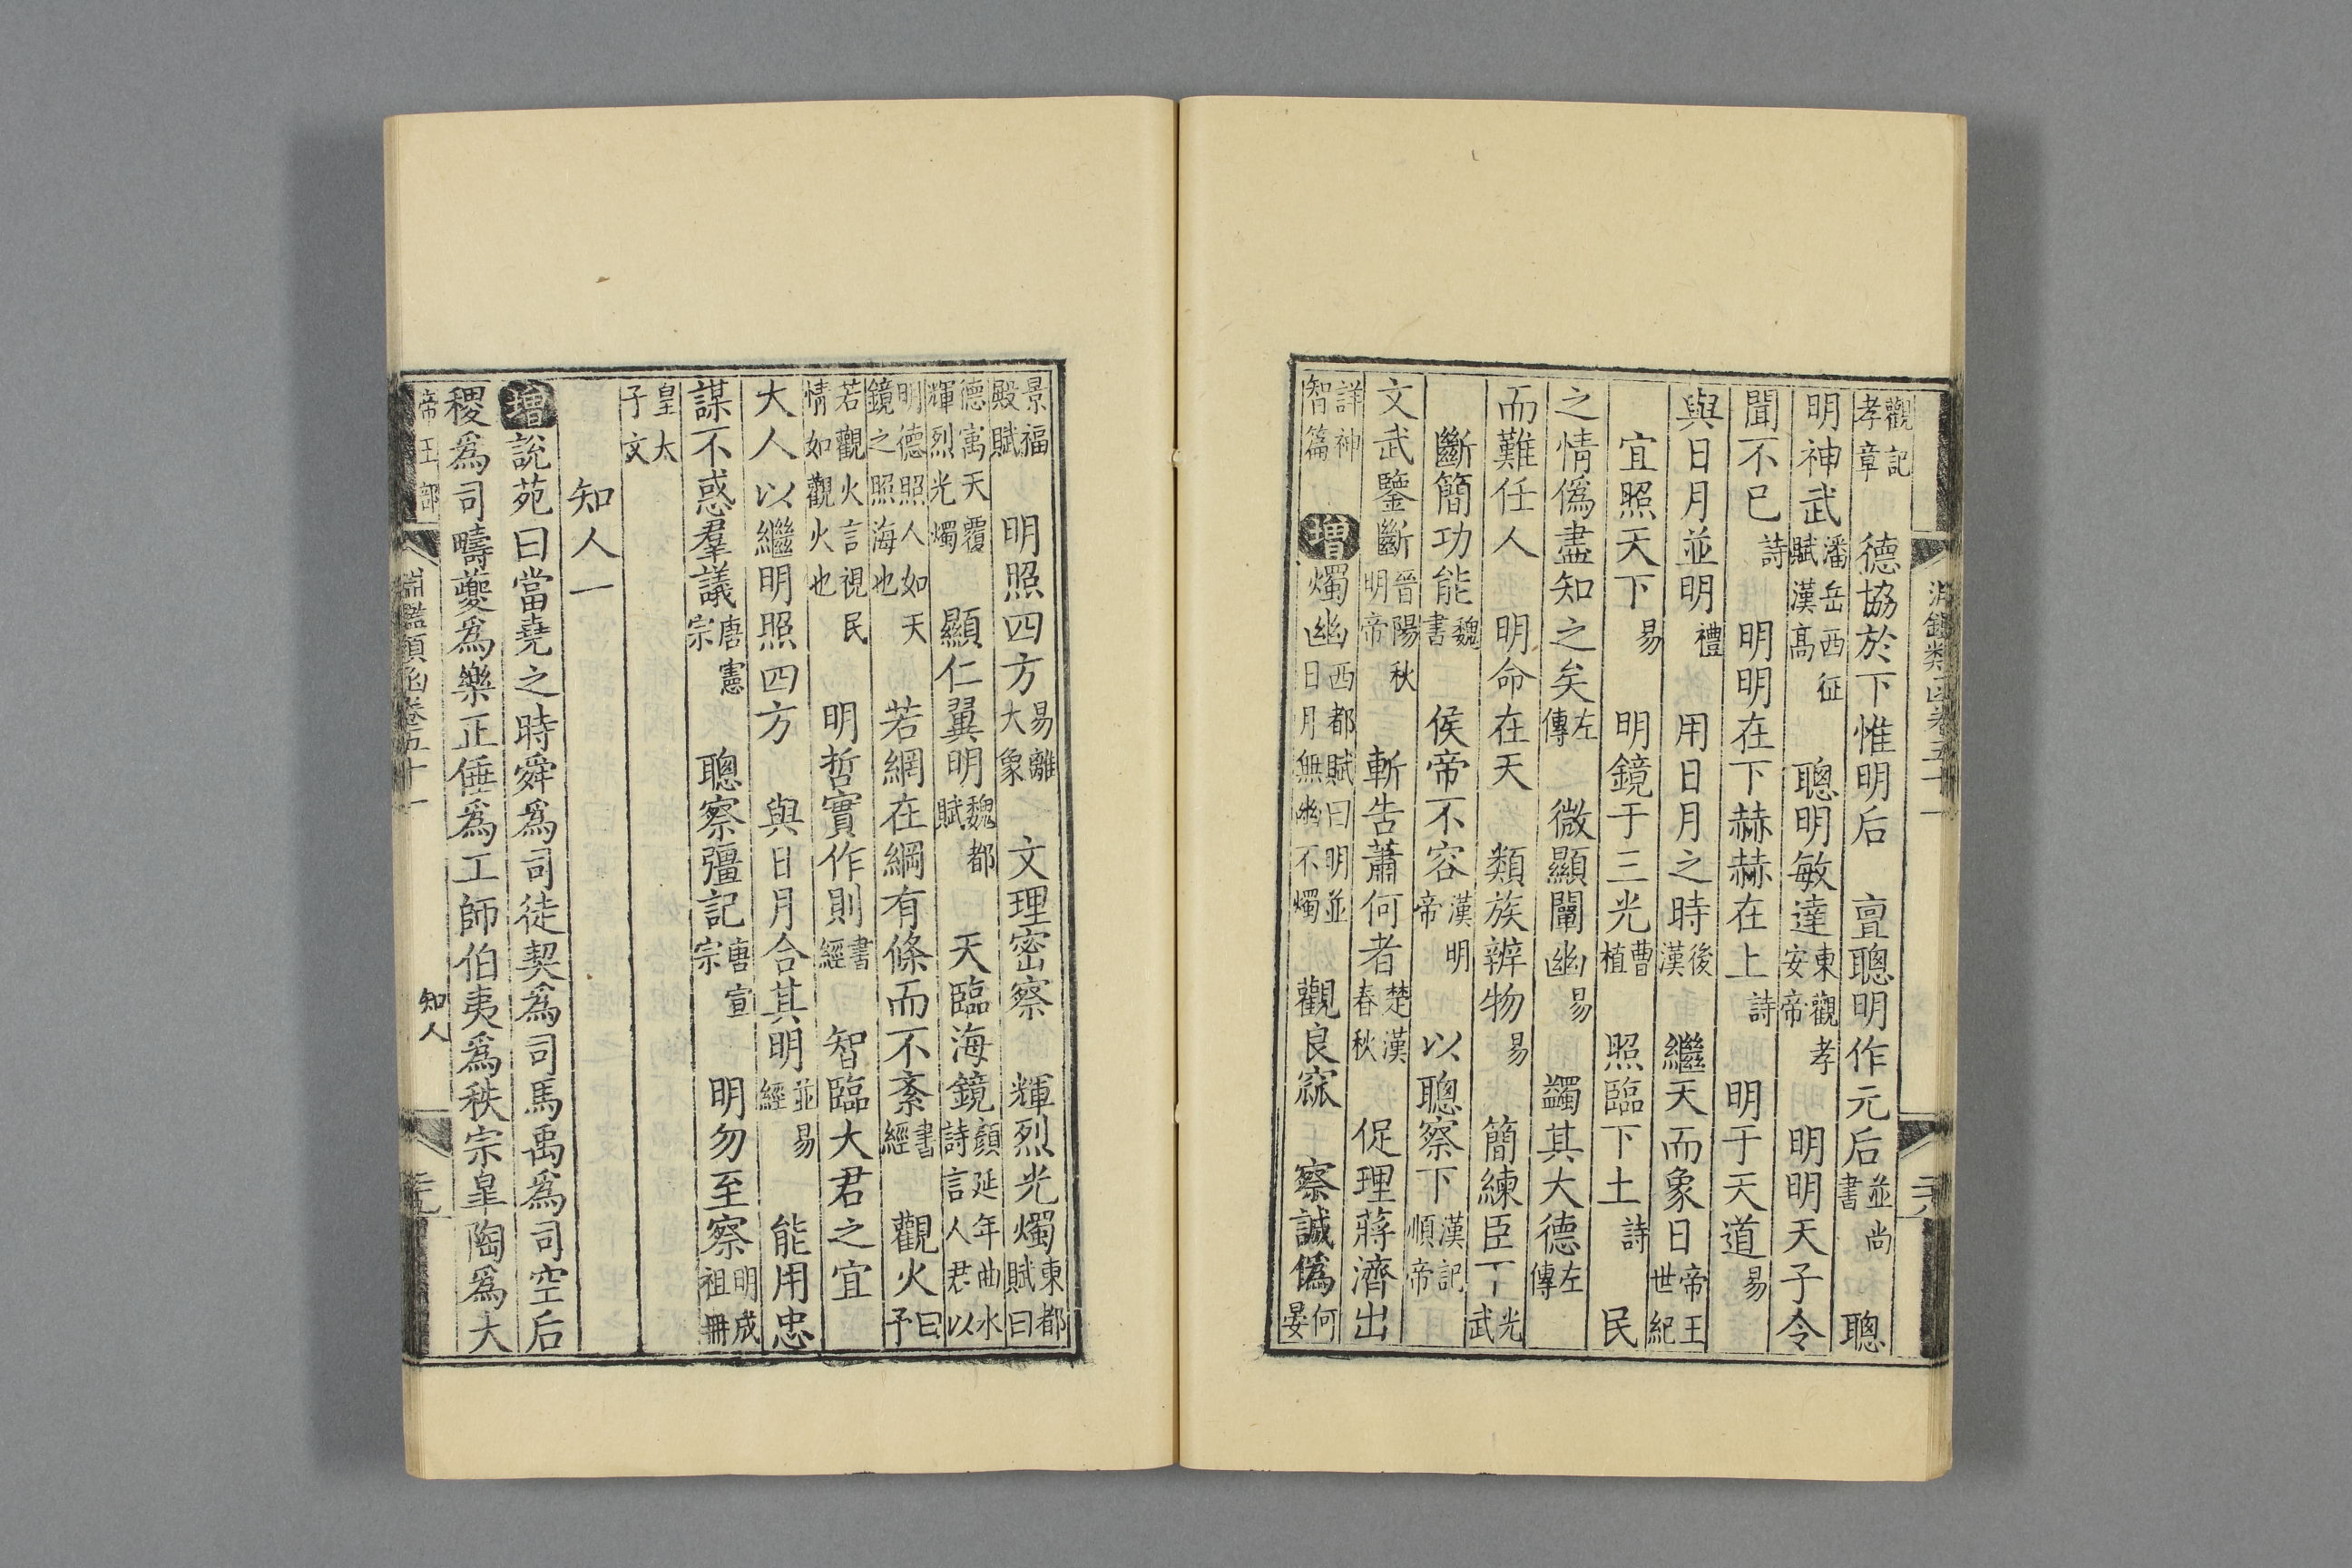 淵鑑類函卷五十一
觀記孝章 德協於下惟明后 亶聰明作元后 並尚書 聰
明神武 潘岳西征賦漢高 聰明敏達 東觀孝安帝 明明天子令
聞不已 詩 明明在下赫赫在上 詩 明于天道 易
與日月並明 禮 用日月之時 後漢 繼天而象日 帝王世紀
宜照天下 易 明鏡于三光 曹植 照臨下土 詩 民
之情僞盡知之矣 左傳 微顯闡幽 易 蠲其大德 左傳
而難任人 明命在天 類族辨物 易 簡練臣丁 光武
斷簡功能 魏書 侯帝不容 漢明帝 以聰察下 漢記順帝
文武鑒斷 晉陽秋明帝 斬告蕭何者 楚漢春秋 促理蔣濟出
詳神智篇 增 燭幽 西都賦曰明並日月無幽不燭 觀良窳 察誠僞 何晏
景福殿賦 明照四方 易離大象 文理密察 輝烈光燭 東都賦曰
德寓天覆輝烈光燭 顯仁翼明 魏都賦 天臨海鏡 顏延年曲水詩言人君以
明德照人如天鏡之照海也 若網在綱有條而不紊 書經 觀火 曰予
若觀火言視民情如觀火也 明哲實作則 書經 智臨大君之宜
大人以繼明照四方 與日月合其明 並易經 能用忠
謀不惑羣議 唐憲宗 聰察彊記 唐宣宗 明勿至察 明成祖冊
皇太子文
知人一
增 說苑曰當堯之時舜爲司徒契爲司馬禹爲司空后
稷爲司疇夔爲樂正倕爲工師伯夷爲秩宗皐陶爲大
帝王部 淵鑑類函卷五十一 知人